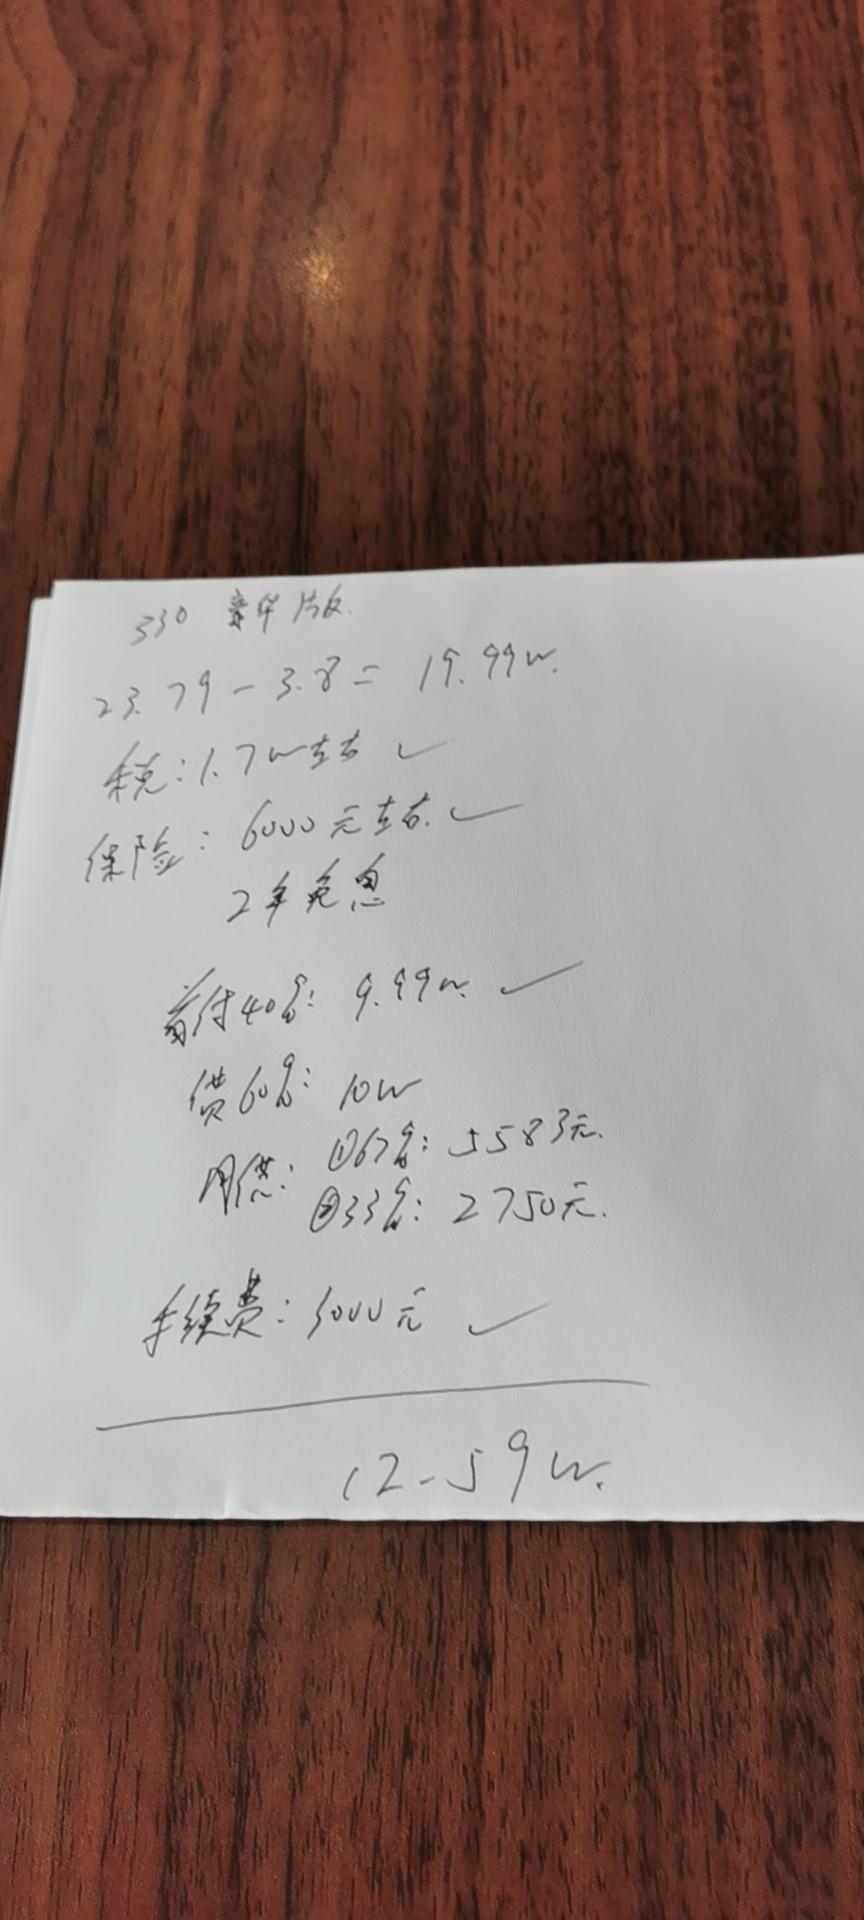 330 豪华版.
23.79-3.8=19.99w.
税:1.7w左右 ✓
保险:6000元左右.✓
2年免息
首付40%:9.99w.✓
贷60%:10w
月供:①67%:5583元.
②33%:2750元.
手续费:3000元 ✓
12.59w.